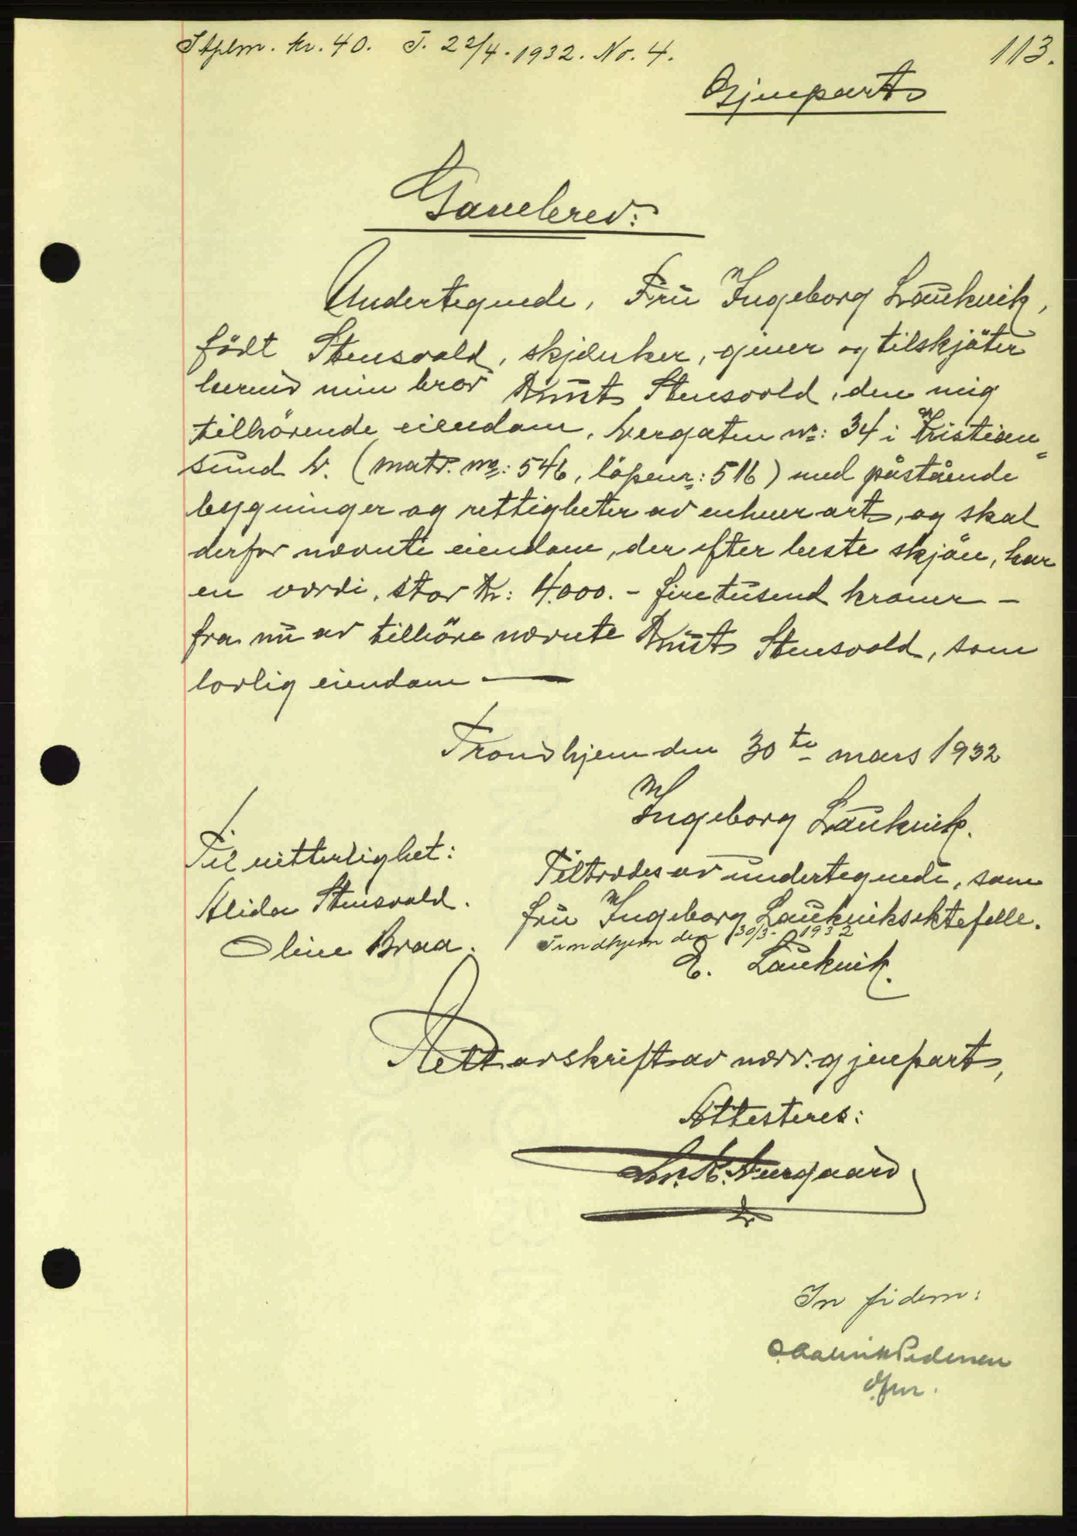 Stplm. kr. 40. T. 22/4. 1932. No. 4.
113.
Gjenpart
Gavebrev:
Undertegnede, Fru Ingeborg Laukvik,
födt Stensvold, skjenker, giver og tilskjöter
herved min bror Knut Stensvold, den mig
tilhörende eiendom, Vergaten no: 34 i Kristian=
sund N. (matr. no: 546, löpenr: 516) med påstående
bygninger og rettigheter av enhver art, og skal
derfor nævnte eiendom, der efter beste skjön, har
en værdi, stor Kr: 4.000. - fire tusend kroner -
fra nu av tilhöre nævnte Knut Stensvold, som
lovlig eiendom
Trondhjem den 30te mars 1932
Ingeborg Laukvik.
Til vitterlighet:
Alida Stensvold.
Oline Braa.
Tiltrædes av undertegnede, som
fru Ingeborg Laukviks ektefelle.
Trondhjem den 30/3- 1932
E. Laukvik.
Rett avskrift av nærv. gjenpart,
Attesteres:
Neergaard
In fidem:
Pedersen